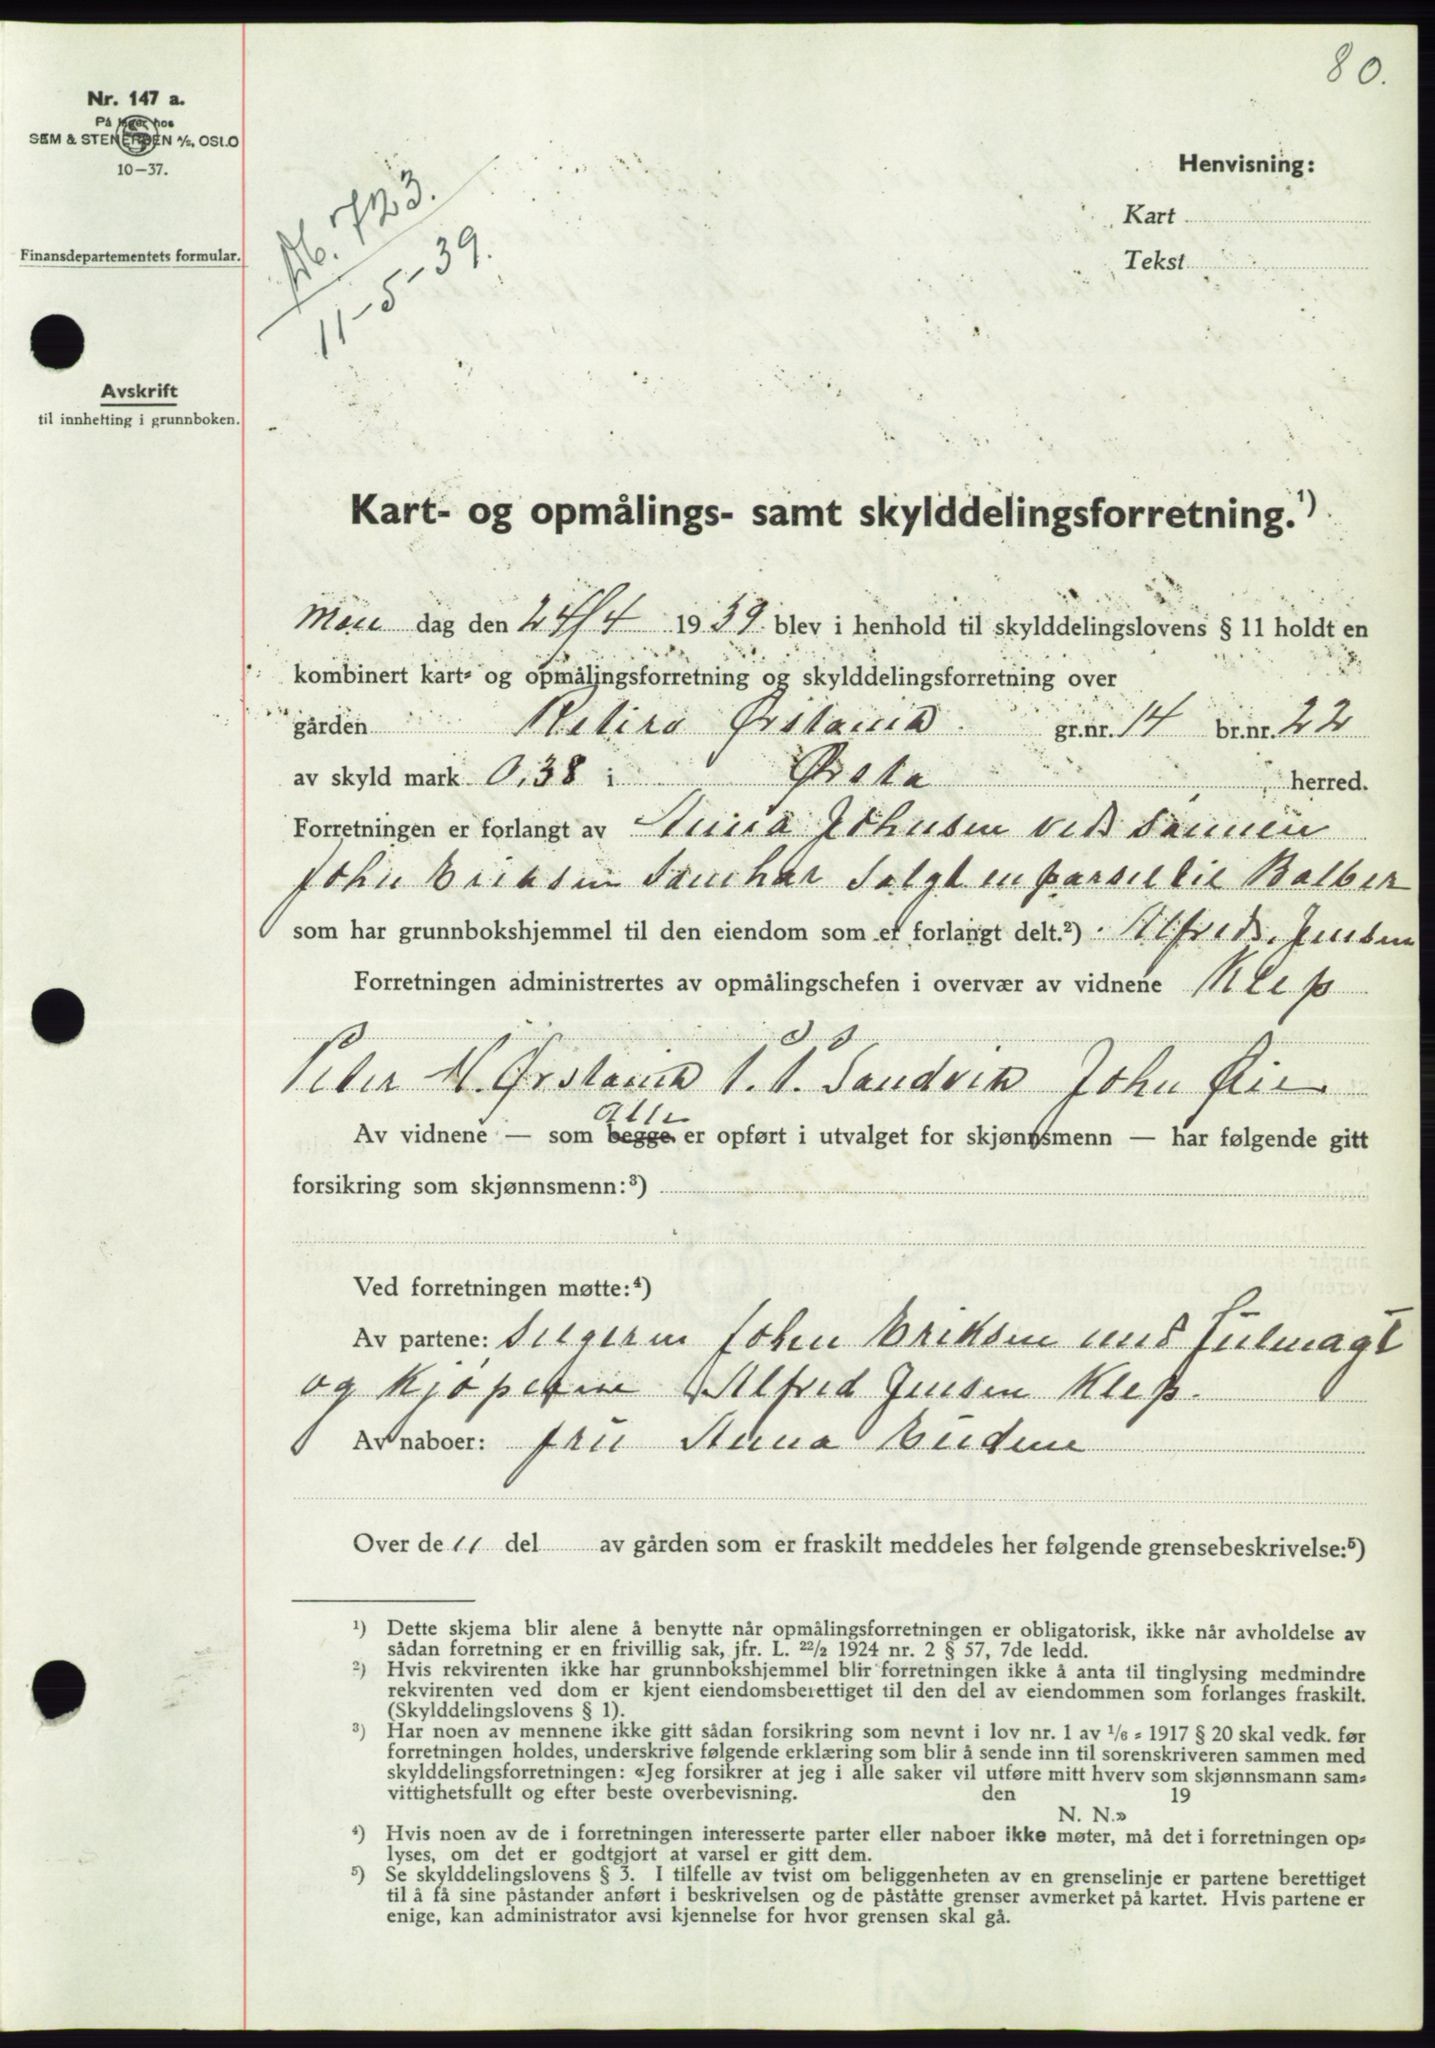 80.
Nr. 147 a.
På lager hos
SEM & STENERSEN A/S, OSLO
10-37.
Finansdepartementets formular.
Avskrift
til innhefting i grunnboken.
Db. 723.
11-5-39.
Henvisning:
Kart
Tekst
Kart- og opmålings- samt skylddelingsforretning.¹)
Man dag den 24/4 1939 blev i henhold til skylddelingslovens § 11 holdt en
kombinert kart- og opmålingsforretning og skylddelingsforretning over
gården Retiro Ørstavik gr.nr. 14 br.nr. 22
av skyld mark 0,38 i Ørsta herred.
Forretningen er forlangt av Anna Johnsen ved sønnen
John Eriksen som har solgt en parsel til Balber
som har grunnbokshjemmel til den eiendom som er forlangt delt.²) Alfred Jensen
Forretningen administrertes av opmålingschefen i overvær av vidnene Klep
Peter M. Ørstavik P. P. Sandvik John Øie
Av vidnene — som begge alle er opført i utvalget for skjønnsmenn — har følgende gitt
forsikring som skjønnsmenn:³)
Ved forretningen møtte:⁴)
Av partene: selgeren John Eriksen med fulmagt
og kjøperen Alfred Jensen Klep.
Av naboer: fru Anna
Over de 11 del av gården som er fraskilt meddeles her følgende grensebeskrivelse:⁵)
¹) Dette skjema blir alene å benytte når opmålingsforretningen er obligatorisk, ikke når avholdelse av
sådan forretning er en frivillig sak, jfr. L. 22/2 1924 nr. 2 § 57, 7de ledd.
²) Hvis rekvirenten ikke har grunnbokshjemmel blir forretningen ikke å anta til tinglysing medmindre
rekvirenten ved dom er kjent eiendomsberettiget til den del av eiendommen som forlanges fraskilt.
(Skylddelingslovens § 1).
³) Har noen av mennene ikke gitt sådan forsikring som nevnt i lov nr. 1 av 1/6 - 1917 § 20 skal vedk. før
forretningen holdes, underskrive følgende erklæring som blir å sende inn til sorenskriveren sammen med
skylddelingsforretningen: «Jeg forsikrer at jeg i alle saker vil utføre mitt hverv som skjønnsmann sam-
vittighetsfullt og efter beste overbevisning. den 19
N. N.»
⁴) Hvis noen av de i forretningen interesserte parter eller naboer ikke møter, må det i forretningen op-
lyses, om det er godtgjort at varsel er gitt dem.
⁵) Se skylddelingslovens § 3. I tilfelle av tvist om beliggenheten av en grenselinje er partene berettiget
til å få sine påstander anført i beskrivelsen og de påståtte grenser avmerket på kartet. Hvis partene er
enige, kan administrator avsi kjennelse for hvor grensen skal gå.